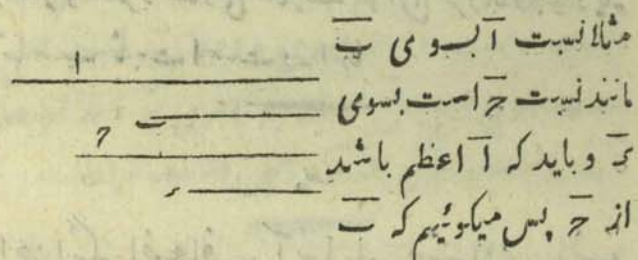 مثلا نسبت آ بسوی بَ
مانند نسبت حَ است بسوی
ءَ و باید که آ اعظم باشد
از حَ پس میگوئیم که بَ
ا
ب
ح
ء